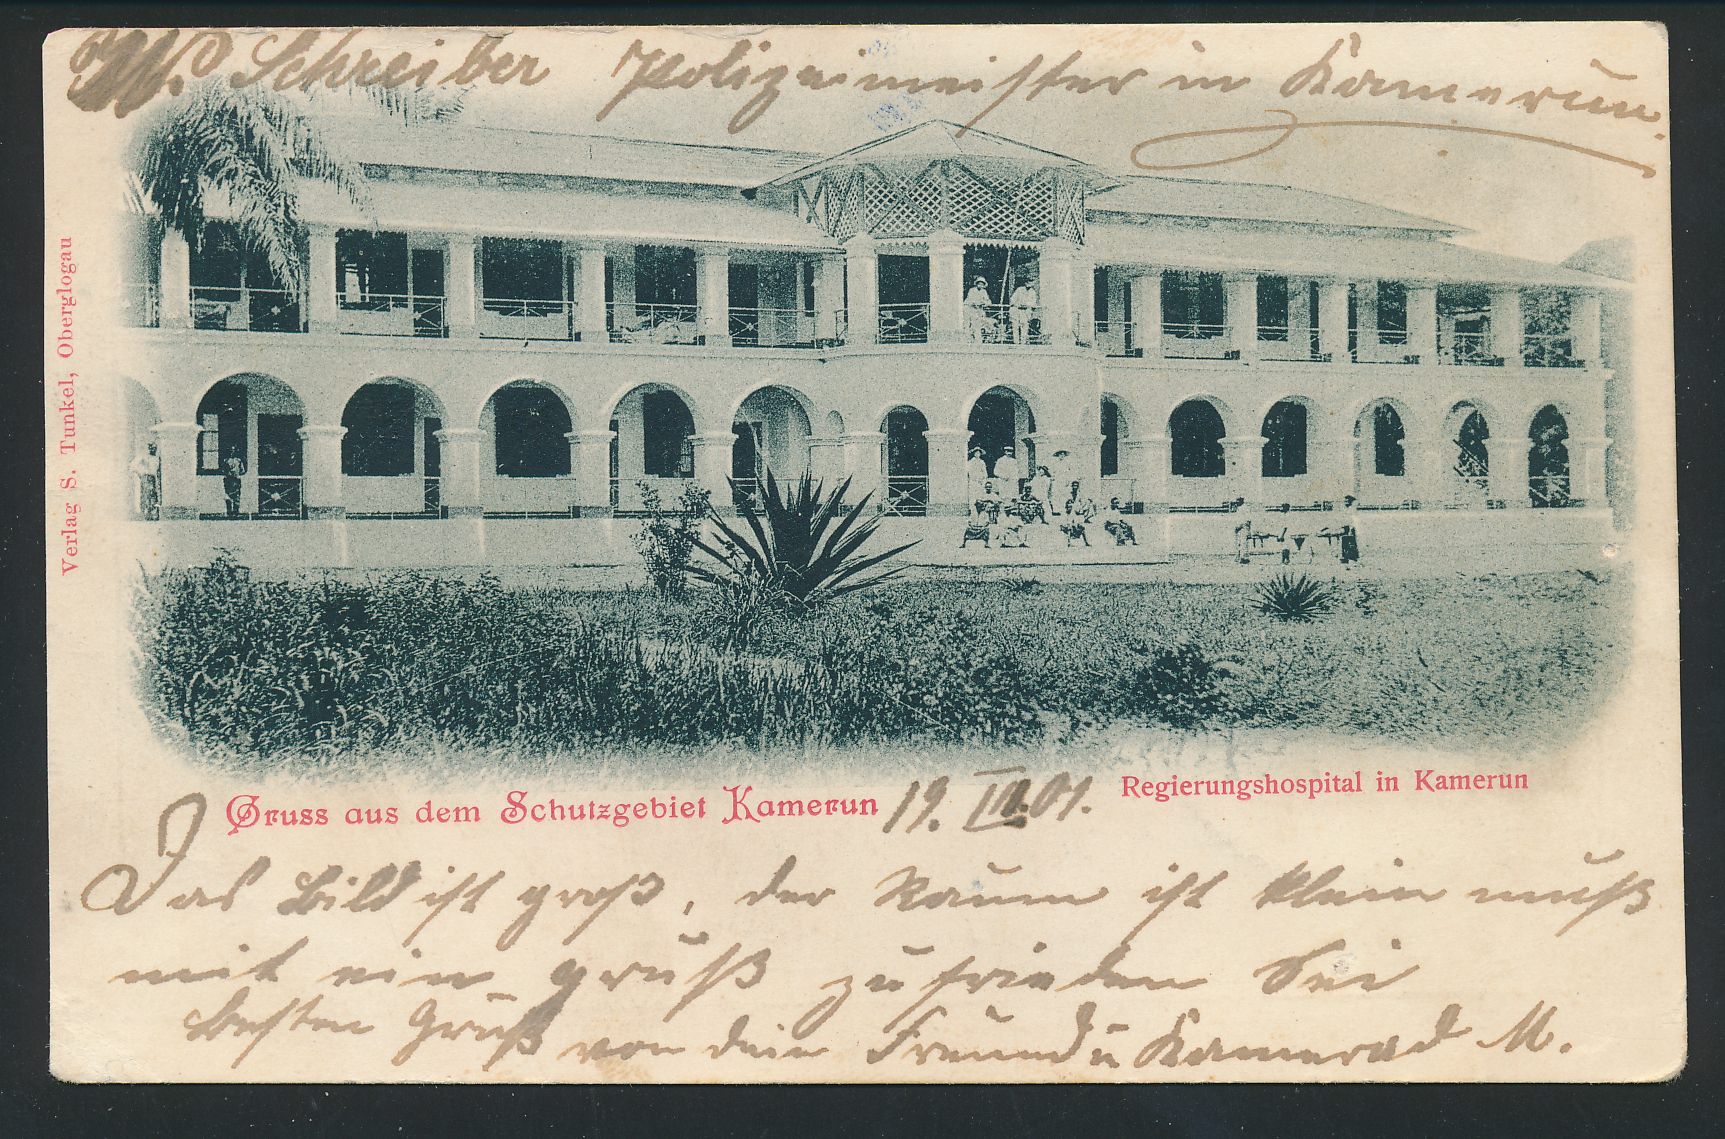 W. Schreiber Polizeimeister in Kamerun.
Verlag S. Tunkel, Oberglogau
Gruss aus dem Schutzgebiet Kamerun
19. 01.
Regierungshospital in Kamerun
Das Bild ist groß, der Raum ist klein muß
mit ein gruß zufrieden Sei
besten Gruß von dein Freund u Kamerad M.